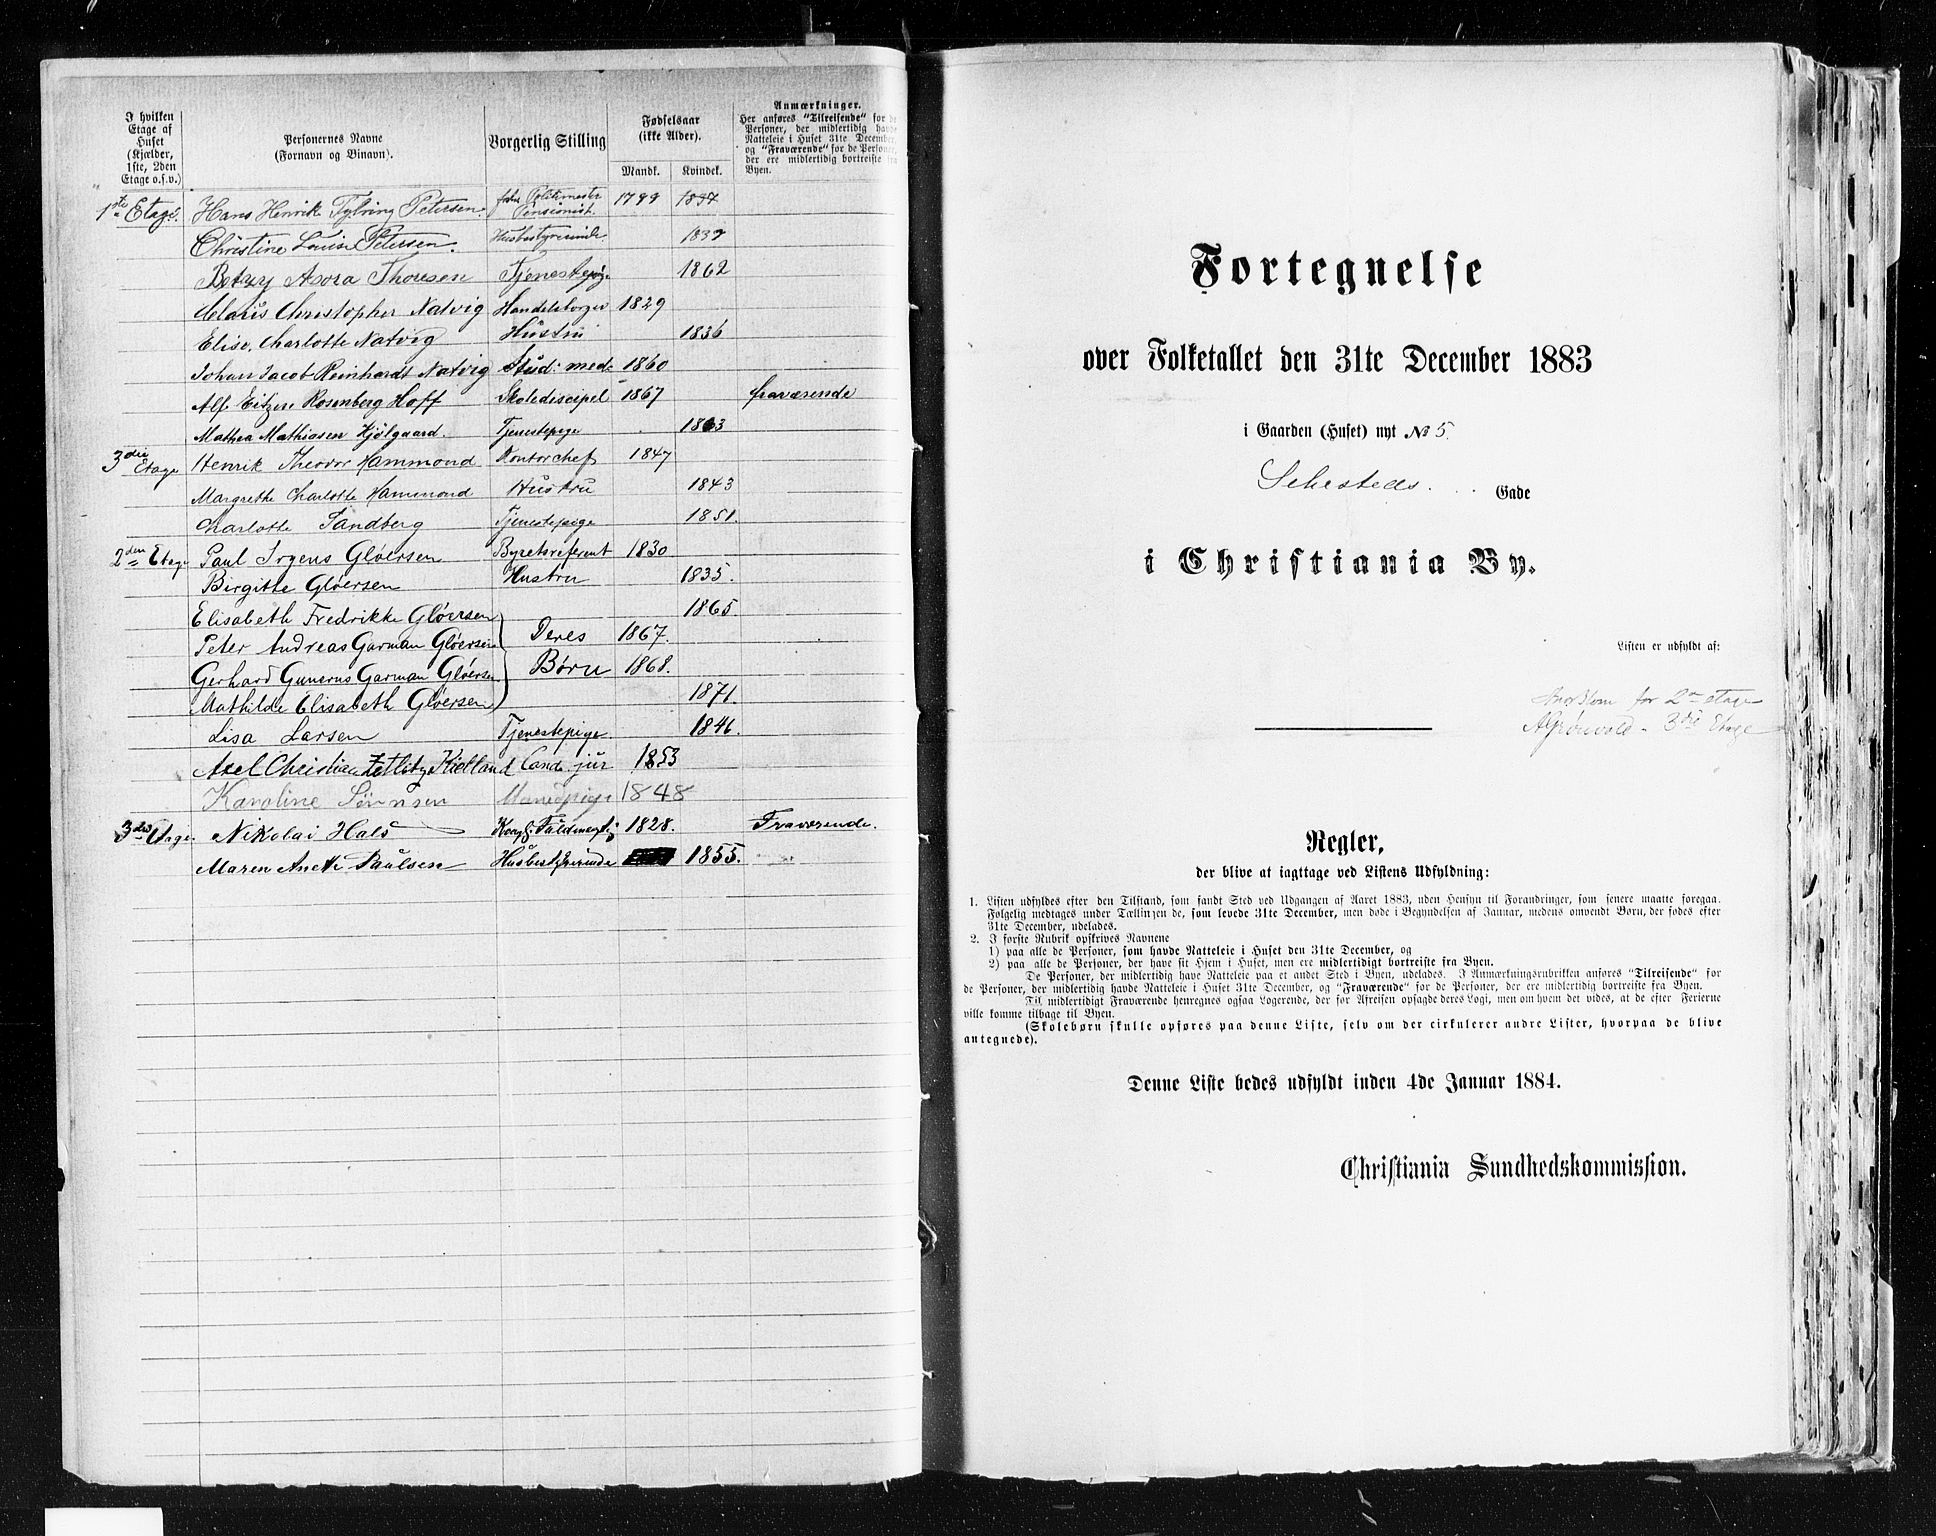 I hvilken Etage af Huset (Kjælder, 1ste, 2den Etage o.s.v.) Personernes Navne (Fornavn og Binavn). Borgerlig Stilling Fødselsaar (ikke Alder). Mandk. Kvindek. Anmærkninger. Her anføres "Tilreisende" for de Personer, der midlertidig havde Natteleie i Huset 31te December, og "Fraværende" for de Personer, der ere midlertidig bortreiste fra Byen.
1ste Etage. Hans Henrik Tybring Petersen. Politimester Pensionist. 1799
Christine Louise Petersen. Husbestyrerinde.
Betzy Asora Thoresen Tjenestepige 1862
Claus Christopher Natvig Handelsborger 1829
Elise Charlotte Natvig Hustru 1836
Johan Jacob Reinhardt Natvig Stud: med: 1860
Alf Eitzen Rosenberg Hoff Skolediscipel 1867 fraværende
Mathea Mathiasen Hjølgaard. Tjenestepige 1863
3die Etage Henrik Theodor Hammond Kontorchef 1847
Margrethe Charlotte Hammond Hustru 1843
Charlotte Sandberg Tjenestepige 1851.
2den Etage Paul Irgens Gløersen Byretsreferent 1830.
Birgitte Gløersen Hustru 1835.
Elisabeth Fredrikke Gløersen 1865.
Peter Andreas Garman Gløersen Deres 1867.
Gerhard Gunerus Garman Gløersen Børn 1868.
Mathilde Elisabeth Gløersen 1871.
Lisa Larsen Tjenestepige 1846.
Axel Christian Zetlitz Kielland Cand. jur 1853
Karoline Sørnsen 1848
3die Etage. Nikolai Hals Fuldmægtig 1828. Fraværende.
Maren Anette Paulsen Husbestyrerinde 1855.
Fortegnelse
over Folketallet den 31te December 1883
i Gaarden (Huset) nyt № 5.
Sehesteds Gade
i Christiania By.
Listen er udfyldt af:
for 2en etage
AGrønvold - 3die Etage
Regler,
der blive at iagttage ved Listens Udfyldning:
1. Listen udfyldes efter den Tilstand, som fandt Sted ved Udgangen af Aaret 1883, uden Hensyn til Forandringer, som senere maatte foregaa.
Følgelig medtages under Tællingen de, som levede 31te December, men døde i Begyndelsen af Januar, medens omvendt Børn, der fødes efter
31te December, udelades.
2. I første Rubrik opskrives Navnene
1) paa alle de Personer, som havde Natteleie i Huset den 31te December, og
2) paa alle de Personer, der have sit Hjem i Huset, men ere midlertidigt bortreiste fra Byen.
De Personer, der midlertidig have Natteleie paa et andet Sted i Byen, udelades. I Anmærkningsrubrikken anføres "Tilreisende" for
de Personer, der midlertidig havde Natteleie i Huset 31te December, og "Fraværende" for de Personer, der ere midlertidig bortreiste fra Byen.
Til midlertidigt Fraværende henregnes ogsaa Logerende, der før Afreisen opsagde deres Logi, men om hvem det vides, at de efter Ferierne
ville komme tilbage til Byen.
(Skolebørn skulle opføres paa denne Liste, selv om der cirkulerer andre Lister, hvorpaa de blive
antegnede).
Denne Liste bedes udfyldt inden 4de Januar 1884.
Christiania Sundhedskommission.